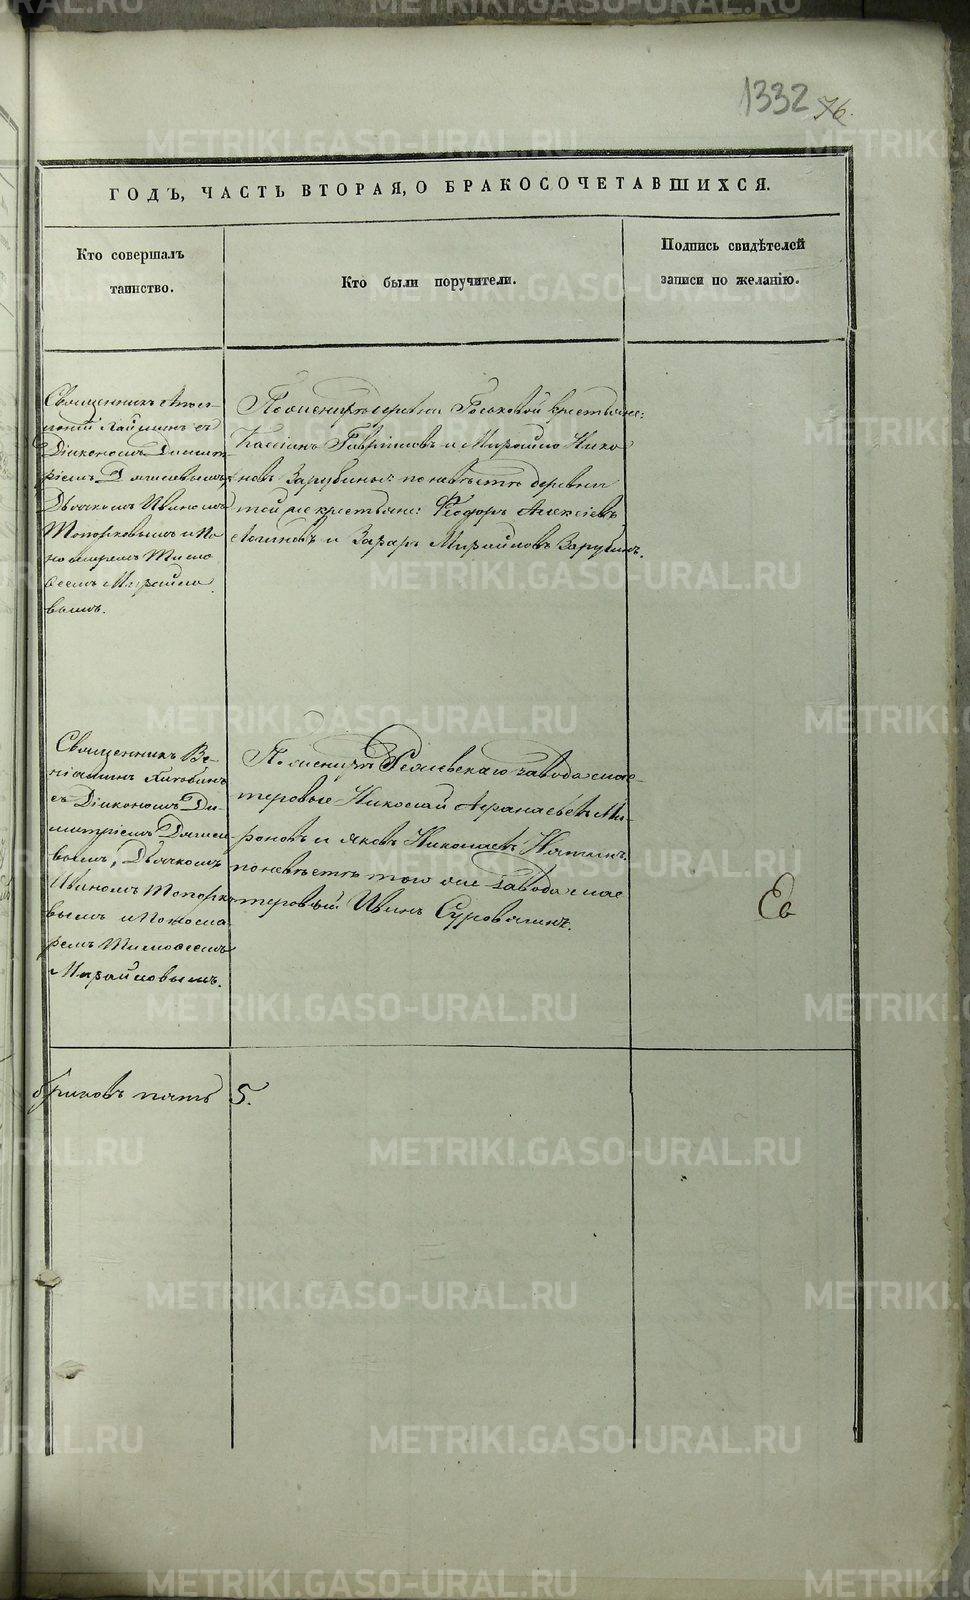 1332 76.
ГОДЪ, ЧАСТЬ ВТОРАЯ, О БРАКОСОЧЕТАВШИХСЯ.
Кто совершалъ
таинство.
Кто были поручители.
Подпись свидѣтелей
записи по желанію.
Священникъ
съ
Діакономъ Димит
ріемъ
Дьячкомъ Иваномъ
Топорковымъ и По
номаремъ Тимо
ѳеемъ Михайло
вымъ.
По женихѣ деревни крестьяне:
Кассіанъ Гавріиловъ и Михайло Нико
новъ Зарубины: по невѣстѣ деревни
той же крестьяне: Ѳеодоръ Алексѣевъ
и Захаръ Михайловъ Зарубинъ.
Священникъ Ве-
ніаминъ
съ Діакономъ Ди-
митріемъ
Дьячкомъ
Иваномъ Топорко
вымъ и Понома
ремъ Тимоѳеемъ
Михайловымъ.
По женихѣ Режевскаго завода мас-
теровые Николай Аѳанасьевъ Ми-
роновъ и Яковъ Николаевъ
по невѣстѣ того же завода мас
теровый Иванъ
браковъ пять 5.
METRIKI.GASO-URAL.RU